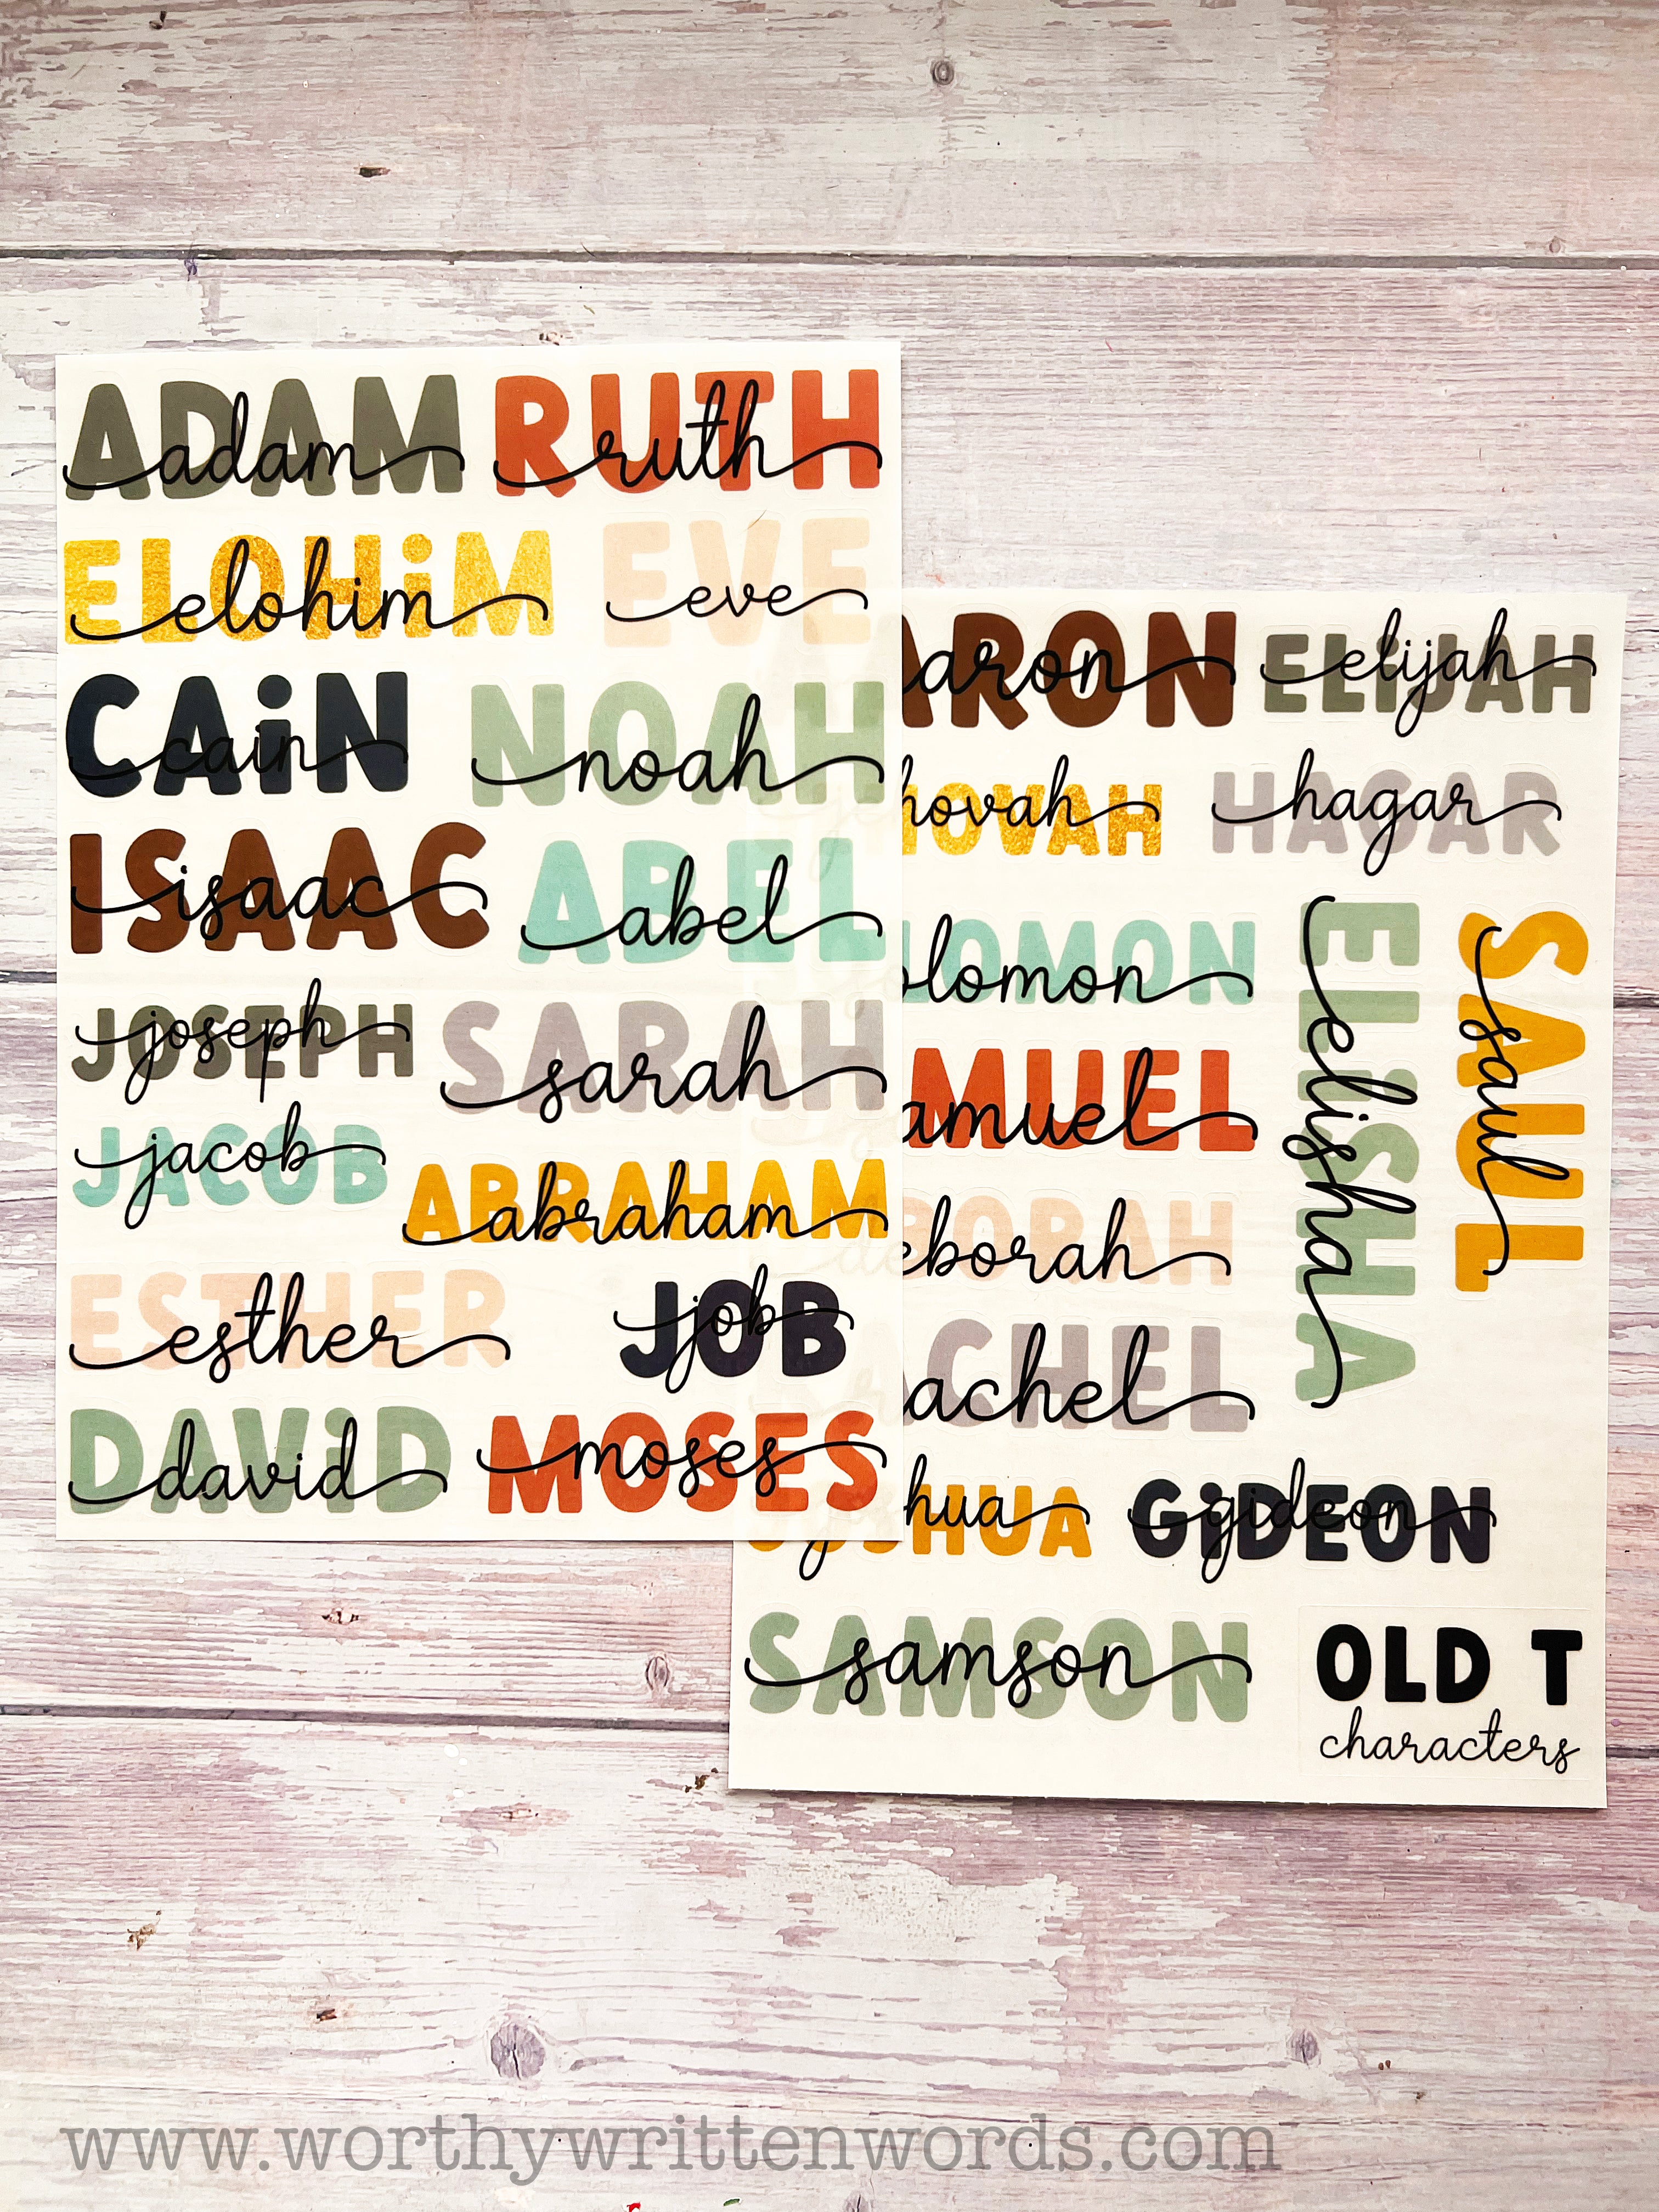 ADAM adam RUTH ruth
ELOHiM elohim EVE eve
CAiN cain NOAH noah
ISAAC isaac ABEL abel
JOSEPH joseph SARAH sarah
JACOB jacob
ABRAHAM abraham
ESTHER esther JOB job
DAViD david MOSES moses
ARON aron ELiJAH elijah
HOVAH hovah HAGAR hagar
OLOMON olomon
ELiSHA elisha
SAUL saul
MUEL amuel
BORAH eborah
ACHEL achel
HUA hua GiDEON gideon
SAMSON samson
OLD T
characters
www.worthywrittenwords.com